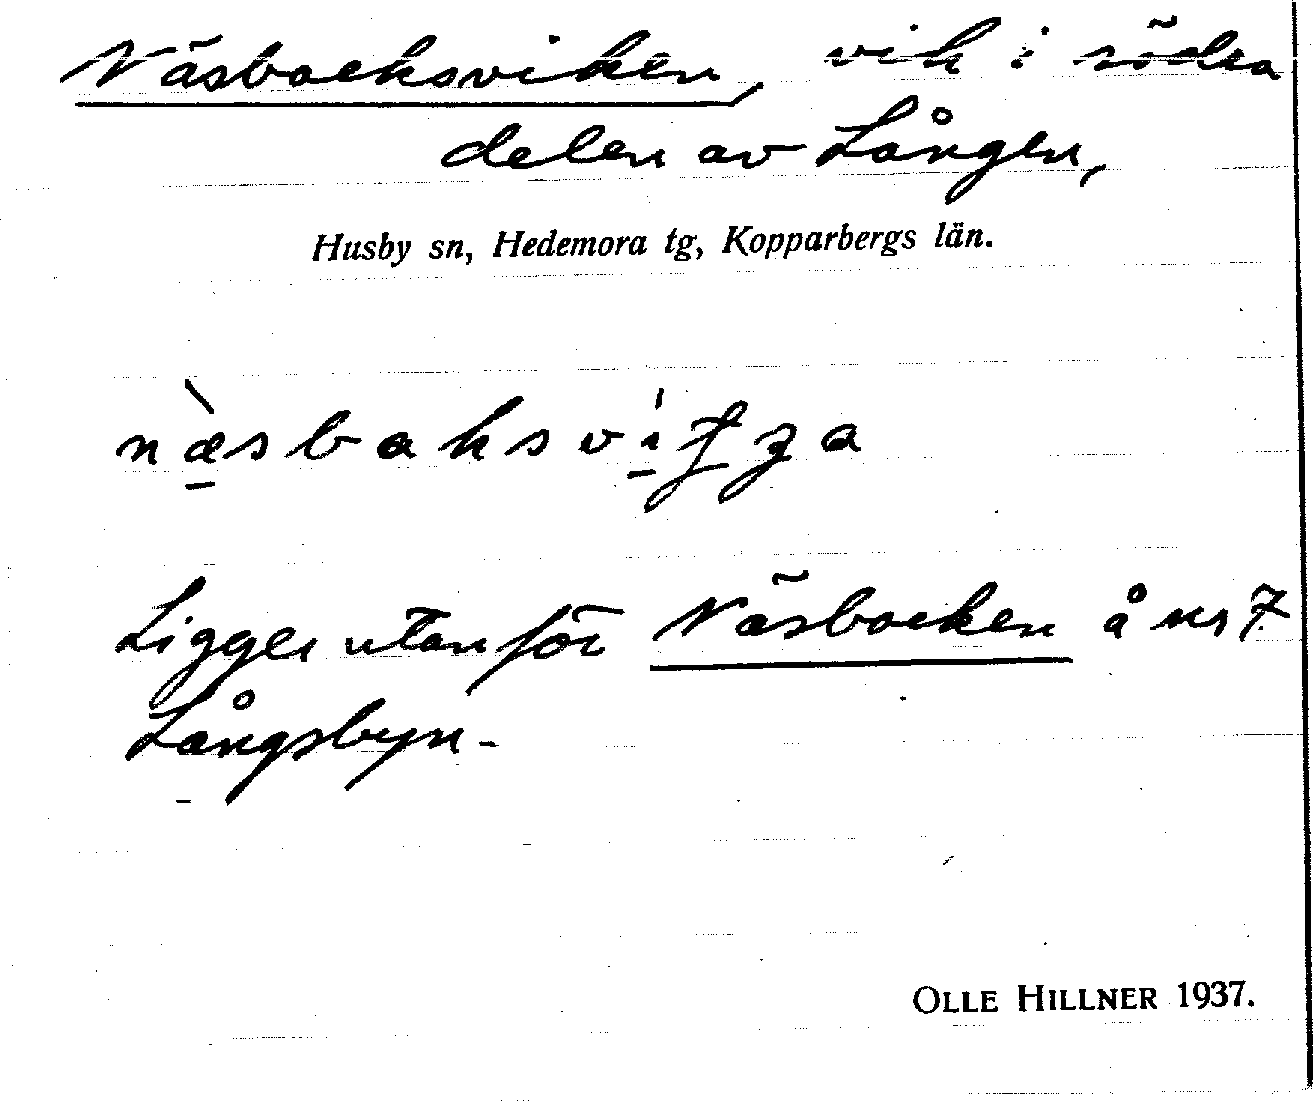 Näsbocksviken, vik i södra
delen av Lången,
Husby sn, Hedemora tg, Kopparbergs län.
Ligger utanför Näsbocken å nr 7
Långsbyn.
OLLE HILLNER 1937.